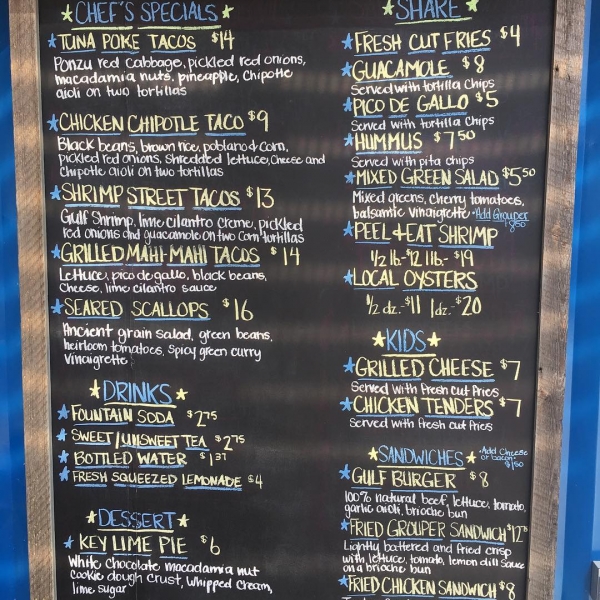 CHEF'S SPECIALS
TUNA POKE TACOS $14
Ponzu red cabbage, pickled red onions,
macadamia nuts, pineapple, Chipotle
aioli on two tortillas
CHICKEN CHIPOTLE TACO $9
Black beans, brown rice, poblano & corn,
pickled red onions, shredded lettuce, cheese and
Chipotle aioli on two tortillas
SHRIMP STREET TACOS $13
Gulf Shrimp, lime cilantro creme, pickled
red onions and guacamole on two corn tortillas
GRILLED MAHI-MAHI TACOS $14
Lettuce, pico de gallo, black beans,
cheese, lime cilantro sauce
SEARED SCALLOPS $16
Ancient grain salad, green beans,
heirloom tomatoes, spicy green curry
Vinaigrette
DRINKS
FOUNTAIN SODA $2.75
SWEET/UNSWEET TEA $2.75
BOTTLED WATER $1.37
FRESH SQUEEZED LEMONADE $4
DESSERT
KEY LIME PIE $6
White chocolate macadamia nut
cookie dough crust, whipped cream,
lime sugar
SHARE
FRESH CUT FRIES $4
GUACAMOLE $8
Served with tortilla chips
PICO DE GALLO $5
Served with tortilla chips
HUMMUS $7.50
Served with pita chips
MIXED GREEN SALAD $5.50
Mixed greens, cherry tomatoes,
balsamic vinaigrette • Add Grouper
8.50
PEEL & EAT SHRIMP
1/2 lb- $12 1lb- $19
LOCAL OYSTERS
1/2 dz- $11 1dz- $20
KIDS
GRILLED CHEESE $7
Served with fresh cut fries
CHICKEN TENDERS $7
Served with fresh cut fries
SANDWICHES • Add Cheese
or bacon •
$1.50
GULF BURGER $8
100% natural beef, lettuce, tomato,
garlic aioli, brioche bun
FRIED GROUPER SANDWICH $12
Lightly battered and fried crisp
with lettuce, tomato, lemon dill sauce
on a brioche bun
FRIED CHICKEN SANDWICH $8